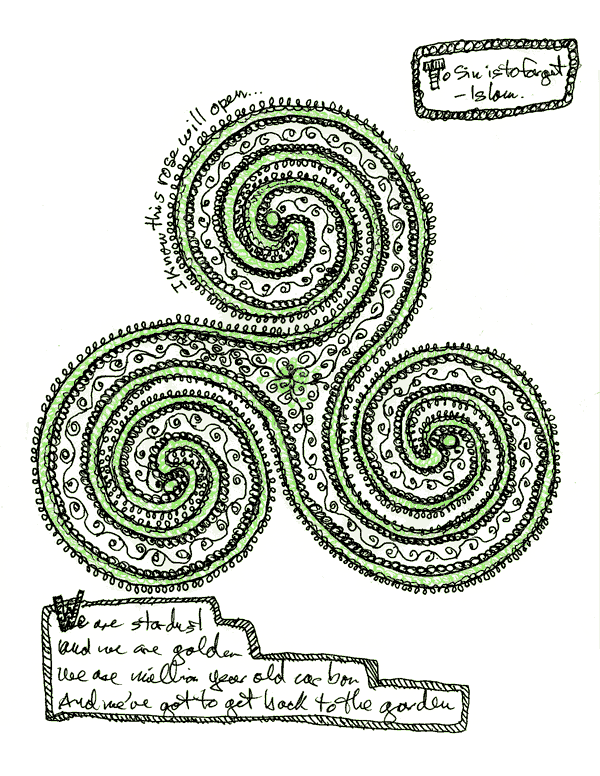 To Sin is to forget
- Islam.
I know this rose will open...
We are stardust
and we are golden
We are million year old carbon
And we've got to get back to the garden